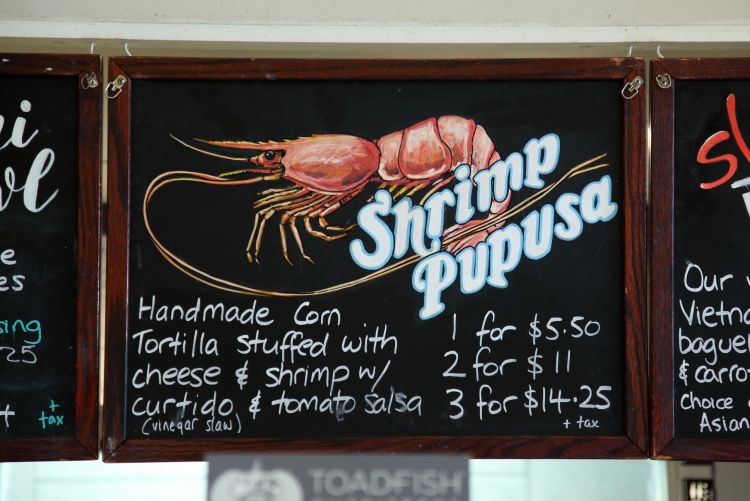 Shrimp
Pupusa
Handmade Corn
Tortilla stuffed with
cheese & shrimp w/
curtido & tomato salsa
(vinegar slaw)
1 for $5.50
2 for $11
3 for $14.25
+ tax
+
tax
Our
baguet
& carro
choice
Asian
TOADFISH